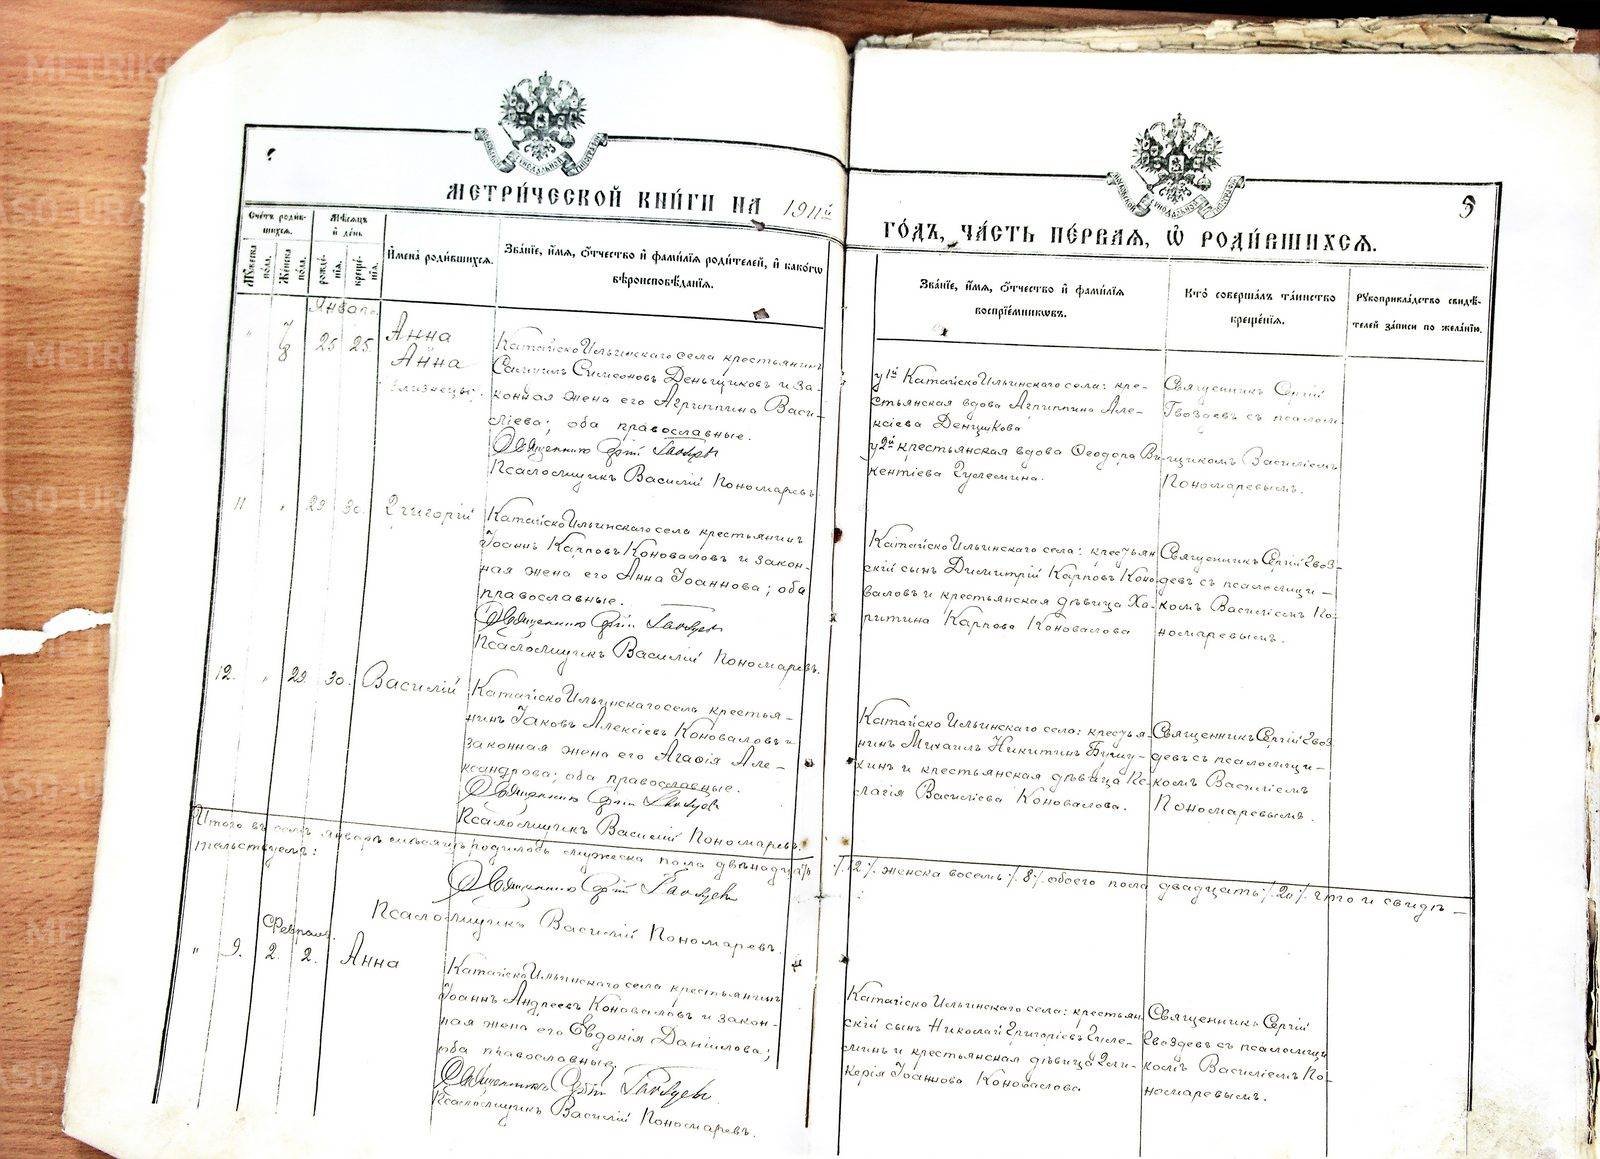 МЕТРИ́ЧЕСКОЙ КНИ́ГИ НА 1911й
ГО́ДЪ, ЧА́СТЬ ПЕ́РВАЯ, Ѡ РОДИ́ВШИХСЯ.
9
Сче́тъ роди́в-
шихся.
Му́жеска по́ла.
Же́нска по́ла.
Мѣ́сяцъ
и де́нь
рожде́-
нія.
креще́-
нія.
Имена́ роди́вшихся.
Зва́ніе, и́мя, о́тчество и фами́лія роди́телей, и како́гѡ
вѣроисповѣ́данія.
Зва́ніе, и́мя, о́тчество и фами́лія
воспріе́мниковъ.
Кто́ соверша́лъ та́инство
креще́нія.
Рукоприкла́дство свидѣ́-
телей за́писи по жела́нію.
Январь.
" 7 8 25 25.
Анна
Анна
близнецы.
Катайско Ильинскаго села крестьянинъ
Самуилъ Симеоновъ Деньщиковъ и за-
конная жена его Агриппина Васи-
лiева; оба православные.
Священникъ Сергій Гвоздевъ
Псаломщикъ Василій Пономаревъ.
у 1й Катайско Ильинскаго села: кре-
стьянская вдова Агриппина Але-
ксіева Денщикова
у 2й крестьянская вдова Ѳеодора Ви-
кентіева Гулемина.
Священникъ Сергій
Гвоздевъ съ псалом-
щикомъ Василіемъ
Пономаревымъ.
11 " 29 30. Григорій
Катайско Ильинскаго села крестьянинъ
Іоаннъ Карповъ Коноваловъ и закон-
ная жена его Анна Іоаннова; оба
православные.
Священникъ Сергій Гвоздевъ
Псаломщикъ Василій Пономаревъ.
Катайско Ильинскаго села: крестьян-
скій сынъ Димитрій Карповъ Коно-
валовъ и крестьянская дѣвица Ха-
ритина Карпова Коновалова
Священникъ Сергій Гвоз-
девъ съ псаломщи-
комъ Василіемъ По-
номаревымъ.
12. " 29 30. Василій
Катайско Ильинскаго села крестья-
нинъ Іаковъ Алексіевъ Коноваловъ и
законная жена его Агафія Але-
ксандрова; оба православные.
Священникъ Сергій Гвоздевъ
Псаломщикъ Василій Пономаревъ.
Катайско Ильинскаго села: крестья-
нинъ Михаилъ Никитинъ
и крестьянская дѣвица Пе-
лагія Василіева Коновалова.
Священникъ Сергій Гвоз-
девъ съ псаломщи-
комъ Василіемъ
Пономаревымъ.
Итого въ семъ январѣ мѣсяцѣ родилось мужеска пола двѣнадцать /.12./. женска восемь /.8./. обоего пола двадцать /.20./. что и свидѣ-
тельствуемъ:
Священникъ Сергій Гвоздевъ
Псаломщикъ Василій Пономаревъ.
Февраль.
" 9. 2. 2. Анна
Катайско Ильинскаго села крестьянинъ
Іоаннъ Андреевъ Коноваловъ и закон-
ная жена его Евдокія Даніилова;
оба православные
Священникъ Сергій Гвоздевъ
Псаломщикъ Василій Пономаревъ.
Катайско Ильинскаго села: крестьян-
скій сынъ Николай Григоріевъ Гуле-
минъ и крестьянская дѣвица Гли-
керія Іоаннова Коновалова
Священникъ Сергій
Гвоздевъ съ псаломщи-
комъ Василіемъ По-
номаревымъ.